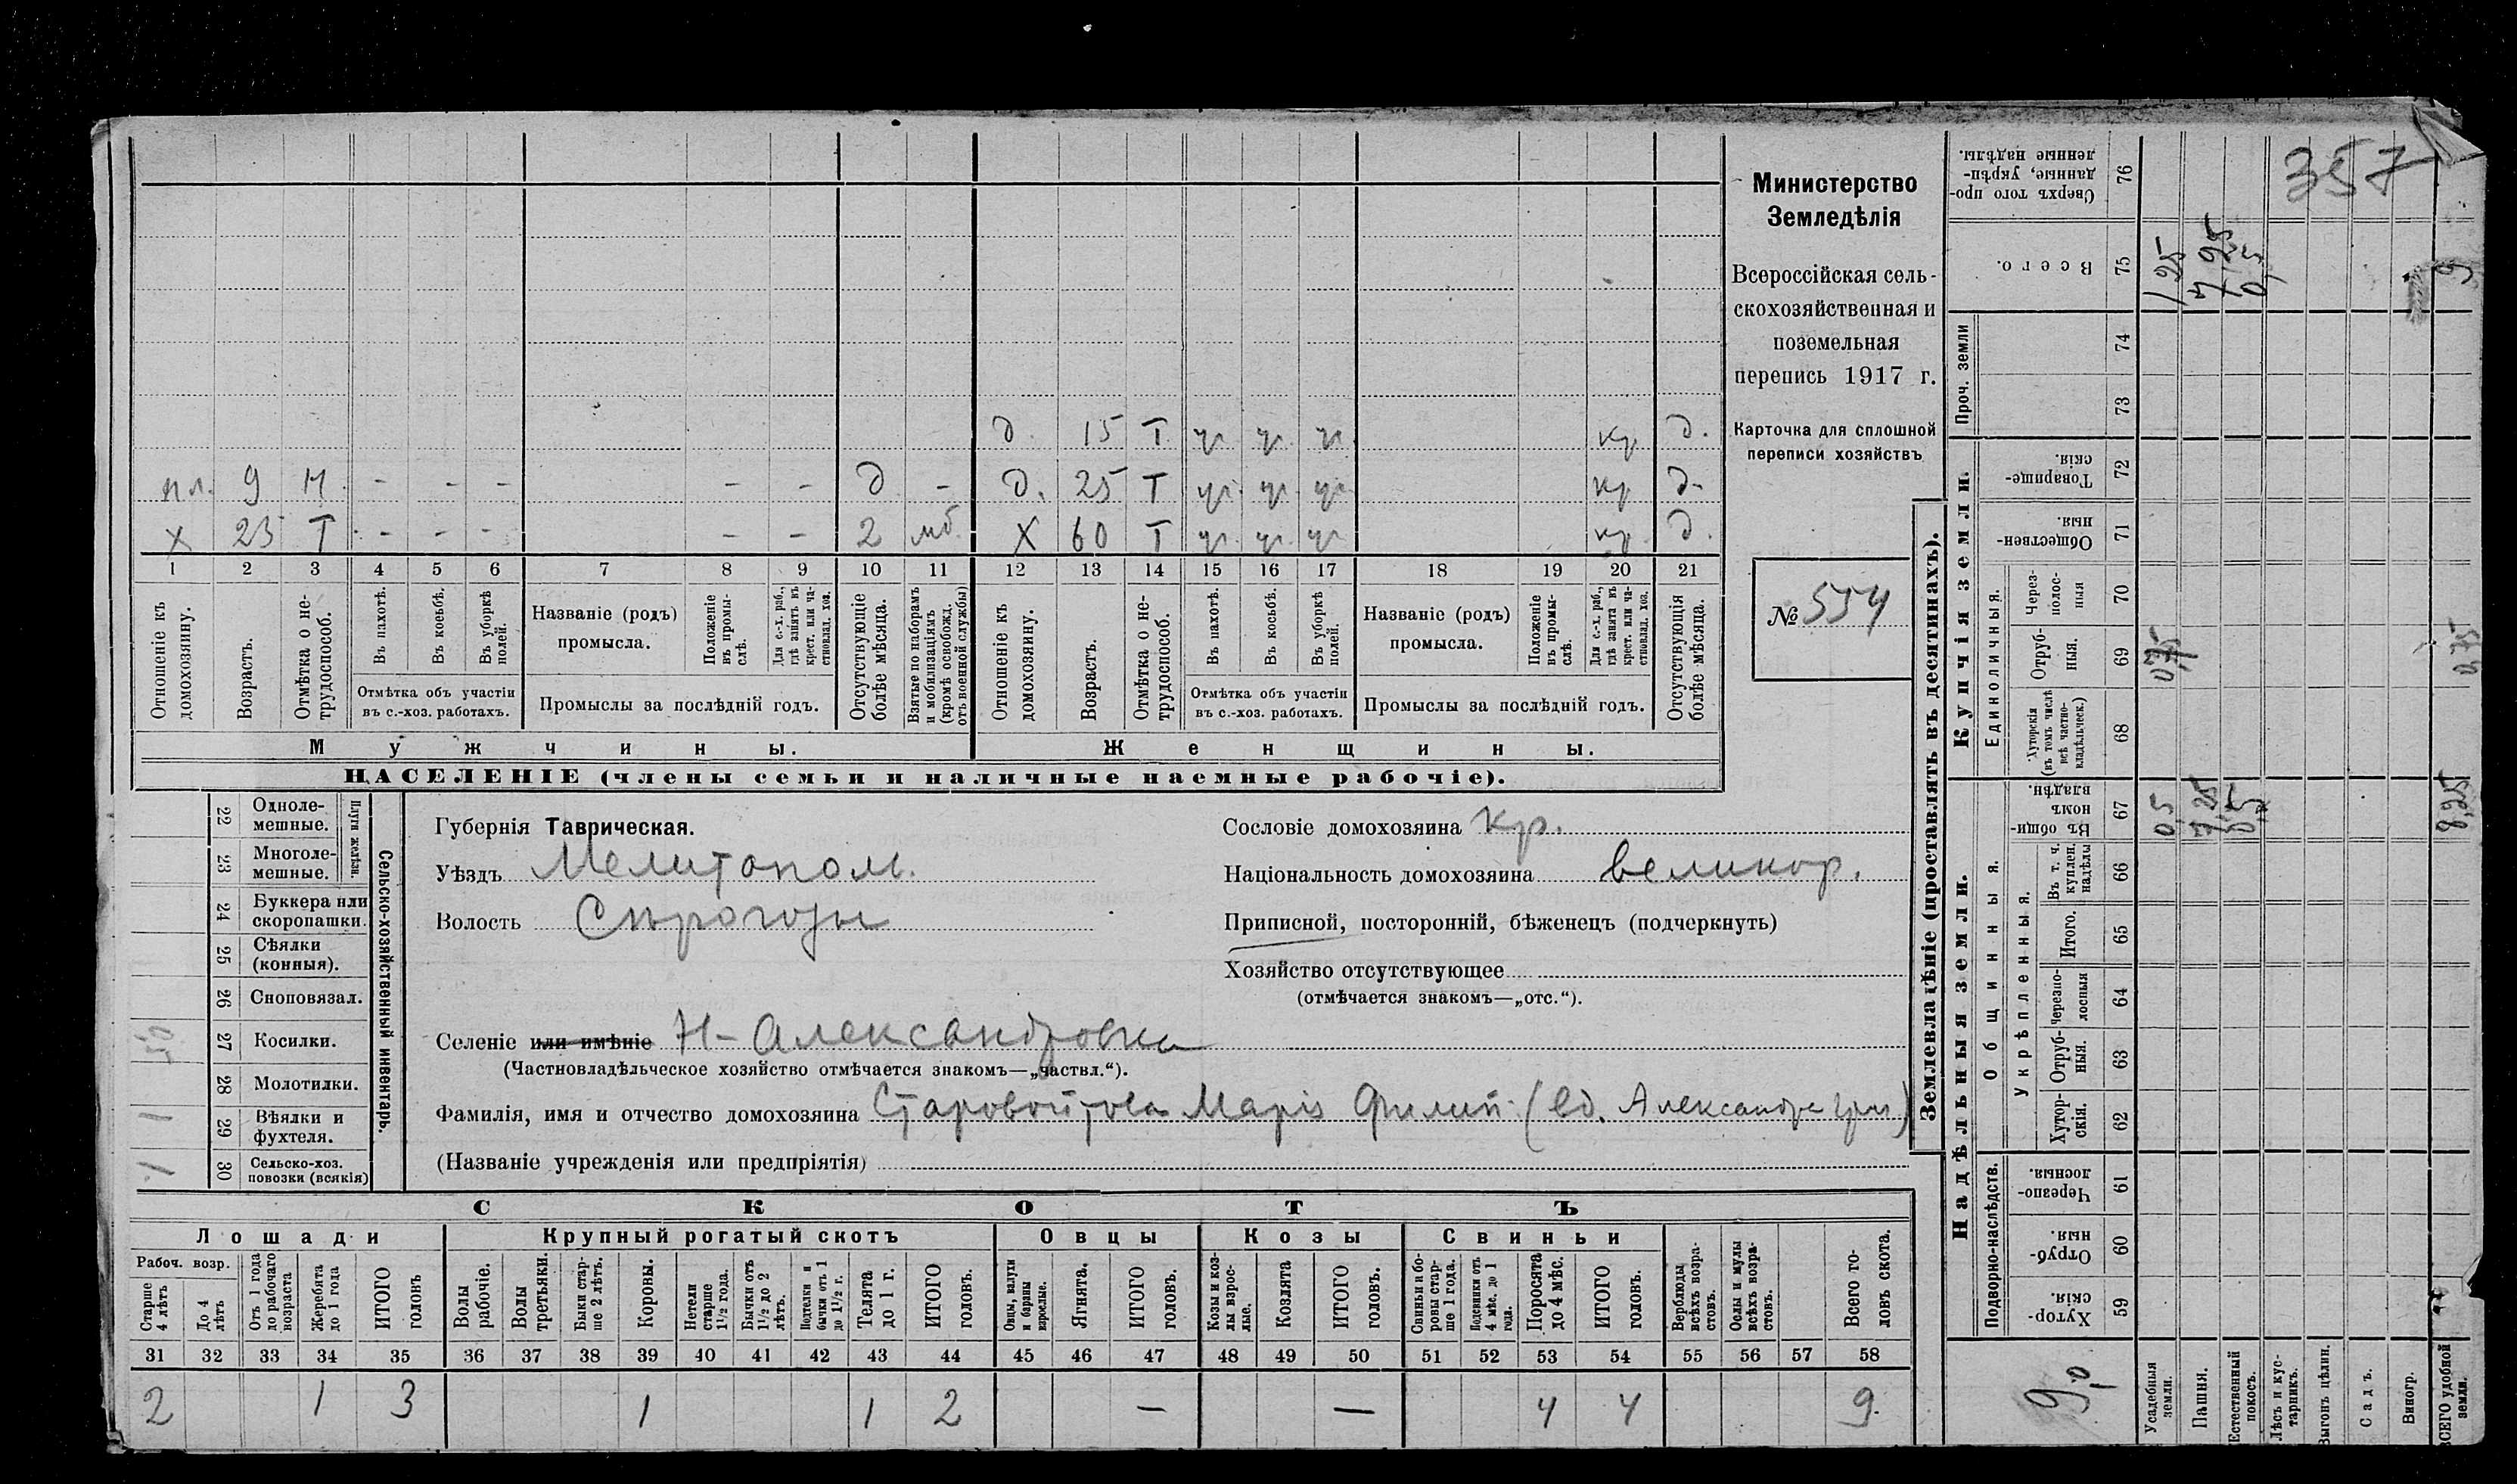 357
Министерство
Земледѣлія
Всероссійская сель-
скохозяйственная и
поземельная
перепись 1917 г.
Карточка для сплошной
переписи хозяйствъ
№ 554
д. 15 Т ч. ч. ч. кр д.
пл. 9 Н - - - - - д - д. 25 Т ч. ч. ч. кр д.
х 23 Т - - - - - 2 мб. х 60 Т ч. ч. ч. кр. д.
1 2 3 4 5 6 7 8 9 10 11 12 13 14 15 16 17 18 19 20 21
Отношеніе къ домохозяину.
Возрастъ.
Отмѣтка о не-трудоспособ.
Въ пахотѣ.
Въ косьбѣ.
Въ уборкѣ полей.
Отмѣтка объ участіи
въ с.-хоз. работахъ.
Названіе (родъ)
промысла.
Положеніе въ промы-слѣ.
Для с.-х. раб., гдѣ занятъ въ крест. или ча-стновлад. хоз.
Промыслы за послѣдній годъ.
Отсутствующіе болѣе мѣсяца.
Взятые по наборамъ и мобилизаціямъ (кромѣ освобожд. отъ военной службы)
Отношеніе къ домохозяину.
Возрастъ.
Отмѣтка о не-трудоспособ.
Въ пахотѣ.
Въ косьбѣ.
Въ уборкѣ полей.
Отмѣтка объ участіи
въ с.-хоз. работахъ.
Названіе (родъ)
промысла.
Положеніе въ промы-слѣ.
Для с.-х. раб., гдѣ занята въ крест. или ча-стновлад. хоз.
Промыслы за послѣдній годъ.
Отсутствующія болѣе мѣсяца.
Мужчины.
Женщины.
НАСЕЛЕНІЕ (члены семьи и наличные наемные рабочіе).
22 Одноле-мешные.
23 Многоле-мешные.
Плуги желѣзн.
24 Буккера или скоропашки.
25 Сѣялки (конныя).
26 Сноповязал.
27 Косилки.
28 Молотилки.
29 Вѣялки и фухтеля. 1
30 Сельско-хоз. повозки (всякія) 1
Сельско-хозяйственный инвентарь.
Губернія Таврическая.
Уѣздъ Мелитополь.
Волость Сѣрогозы
Селеніе или имѣніе Н-Александровка
(Частновладѣльческое хозяйство отмѣчается знакомъ—„частвл.“).
Фамилія, имя и отчество домохозяина Старовойтова Марія Филип. (вд. Александра Гри)
(Названіе учрежденія или предпріятія)
Сословіе домохозяина кр.
Національность домохозяина великор.
Приписной, посторонній, бѣженецъ (подчеркнуть)
Хозяйство отсутствующее
(отмѣчается знакомъ—„отс.“).
СКОТЪ
Лошади
Крупный рогатый скотъ
Овцы
Козы
Свиньи
Рабоч. возр.
Старше 4 лѣтъ
До 4 лѣтъ
Отъ 1 года до рабочаго возраста
Жеребята до 1 года
ИТОГО головъ
Волы рабочіе.
Волы третьяки.
Быки стар-ше 2 лѣтъ.
Коровы.
Нетели старше 1½ года.
Бычки отъ 1½ до 2 лѣтъ.
Подтелки и бычки отъ 1 до 1½ г.
Телята до 1 г.
ИТОГО головъ.
Овцы, валухи и бараны взрослые.
Ягнята.
ИТОГО головъ.
Козы и коз-лы взрос-лые.
Козлята
ИТОГО головъ.
Свиньи и бо-ровы стар-ше 1 года.
Подсвинки отъ 4 мѣс. до 1 года.
Поросята до 4 мѣс.
ИТОГО головъ.
Верблюды всѣхъ возра-стовъ.
Ослы и мулы всѣхъ возра-стовъ.
Всего го-ловъ скота.
31 32 33 34 35 36 37 38 39 40 41 42 43 44 45 46 47 48 49 50 51 52 53 54 55 56 57 58
2 1 3 1 1 2 — — 4 4 9
Землевладѣніе (проставлять въ десятинахъ).
Надѣльныя земли.
Купчія земли.
Проч. земли
Подворно-наслѣдств.
Общинныя.
Укрѣпленныя.
Единоличныя.
59 Хутор-скія.
60 Отруб-ныя.
61 Черезпо-лосныя.
62 Хутор-скія.
63 Отруб-ныя.
64 Черезпо-лосныя
65 Итого.
66 Въ т. ч. куплен. надѣлы
67 Въ общи-номъ владѣн. 0,5 7,25 0,5 8,25
68 Хуторскія (въ томъ числѣ всѣ частно-владѣльческ.)
69 Отруб-ныя. 0,75 0,75
70 Через-полос-ныя
71 Обществен-ныя.
72 Товарище-скія.
73
74
75 Всего. 1,25 7,25 0,5 9
76 Сверхъ того про-данные, укрѣп-ленные надѣлы.
Усадебныя земли.
Пашня.
Естественный покосъ.
Лѣсъ и кус-тарникъ.
Выгонъ цѣлин.
Садъ.
Виногр.
ВСЕГО удобной земли.